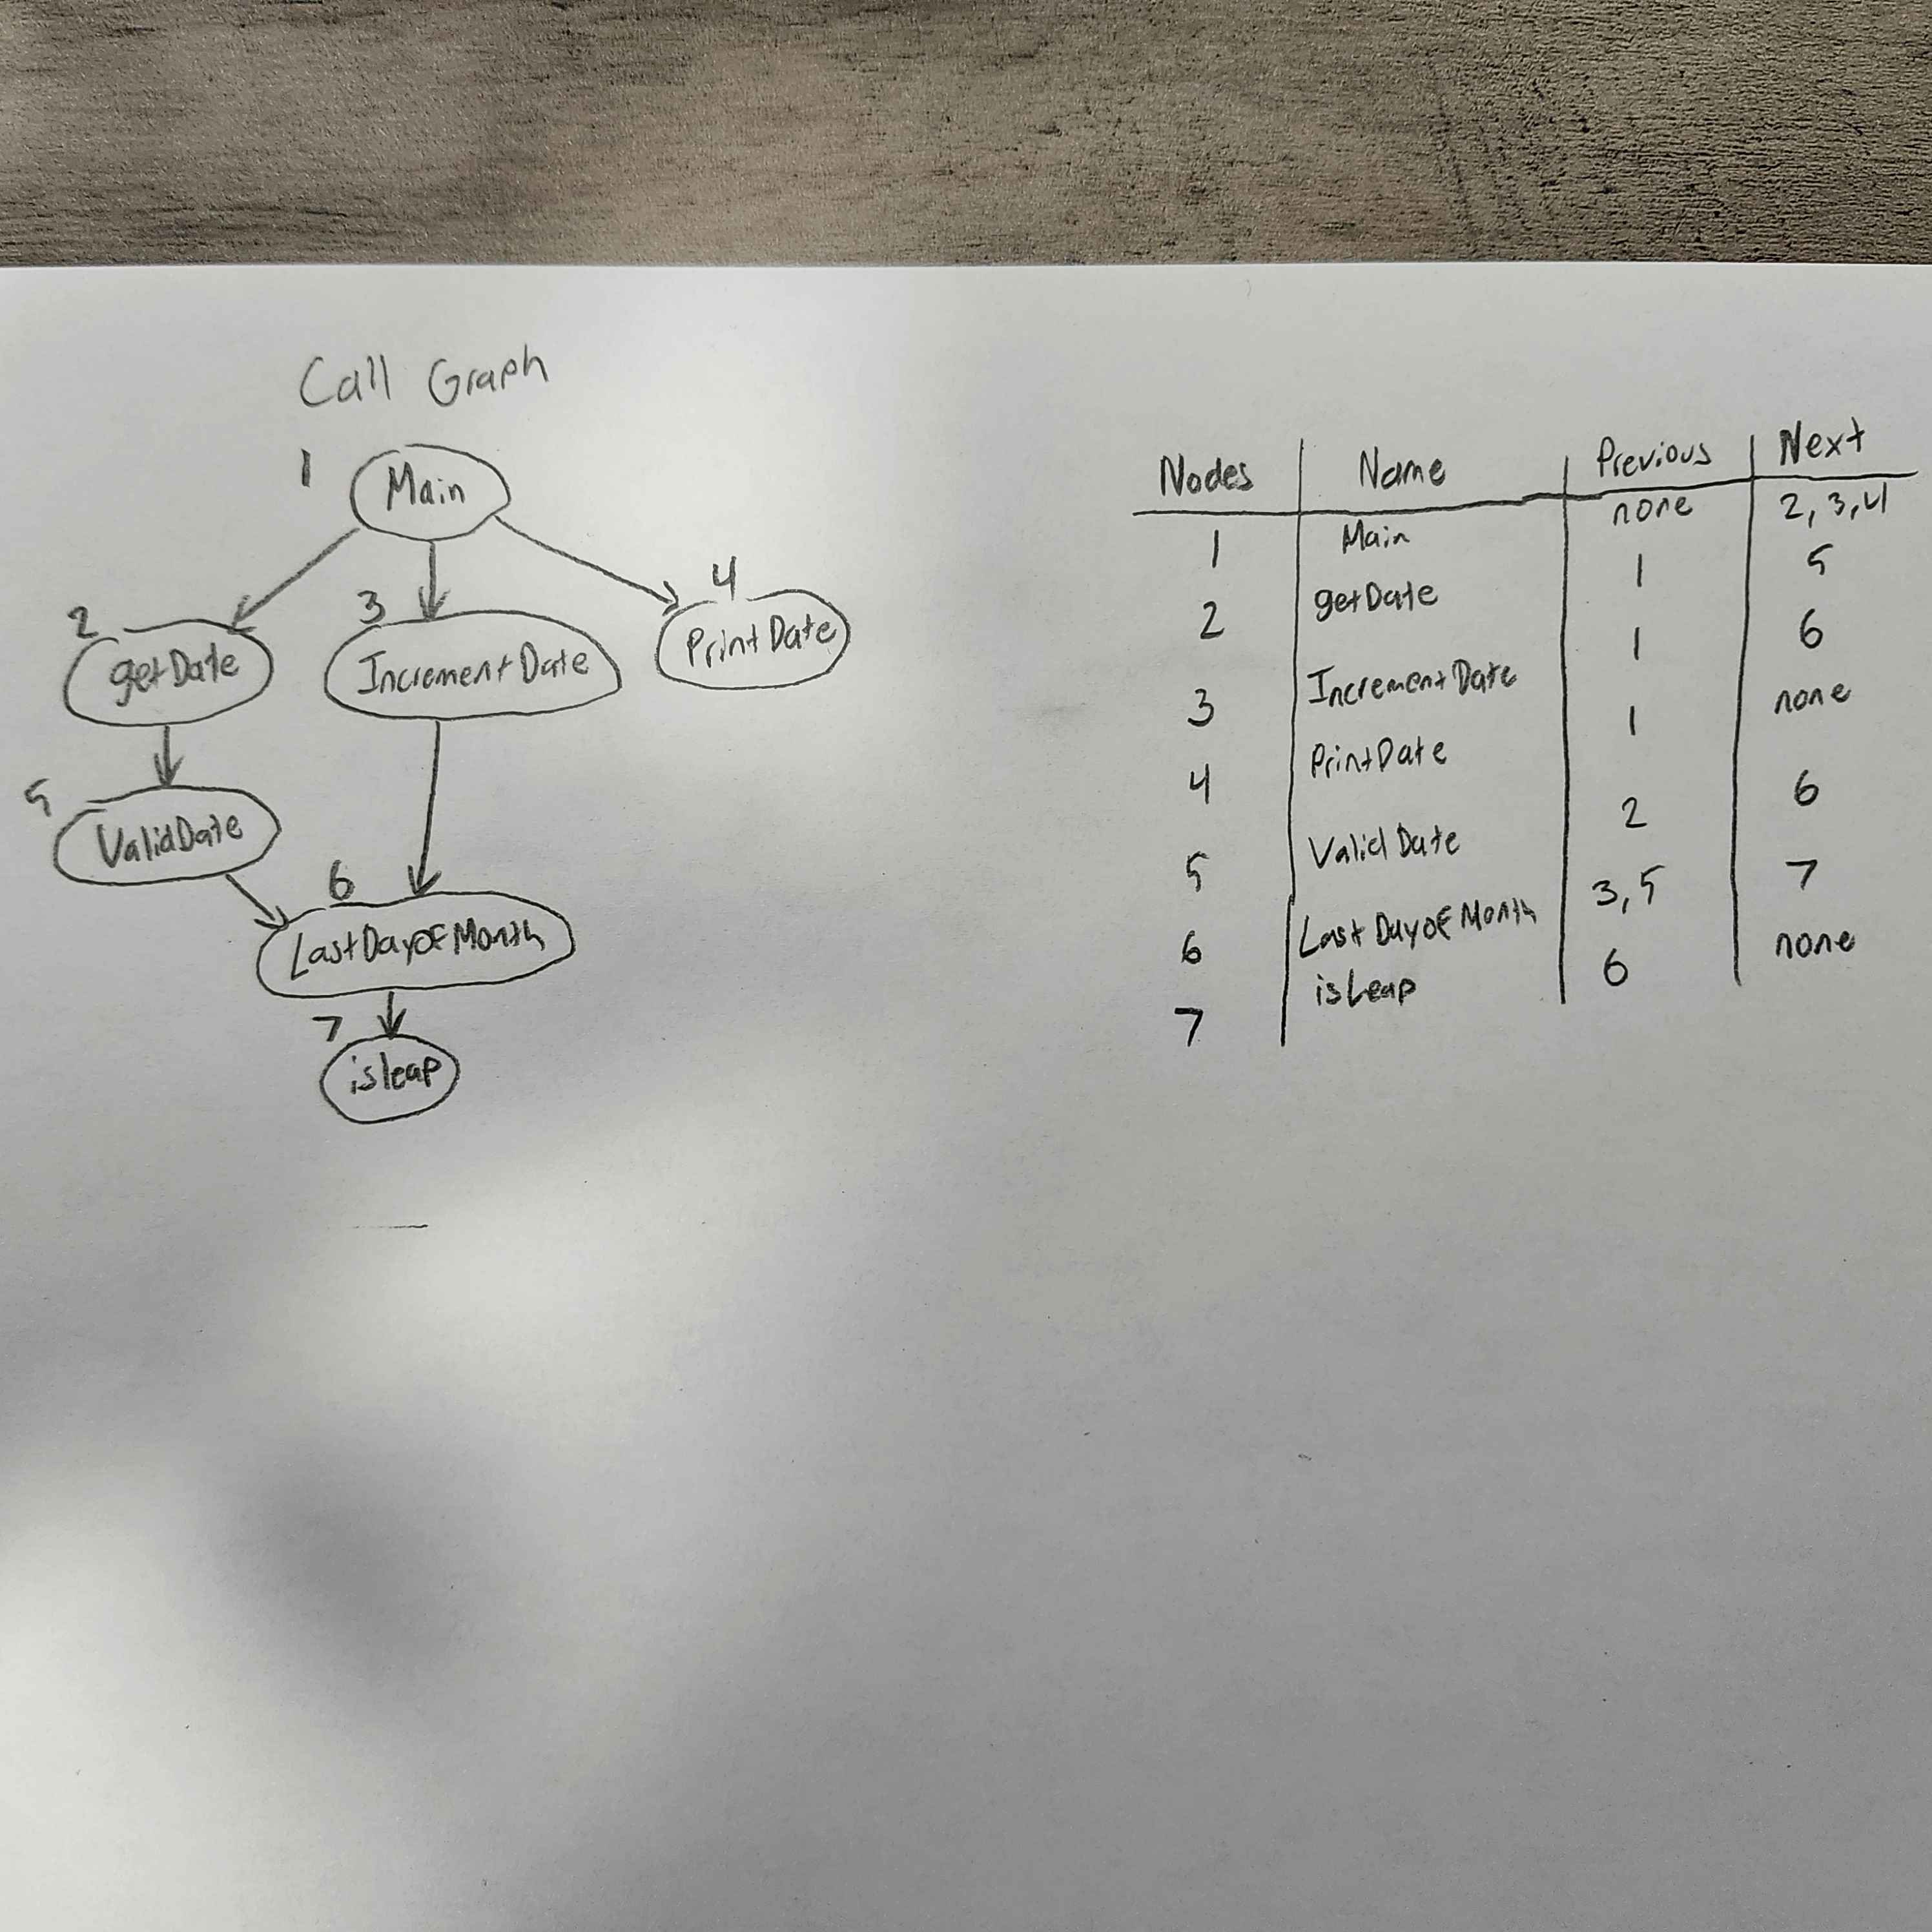 Call Graph
1 Main
2 getDate
3 IncrementDate
4 PrintDate
5 ValidDate
6 LastDayOfMonth
7 isleap
Nodes Name Previous Next
1 Main none 2, 3, 4
2 getDate 1 5
3 IncrementDate 1 6
4 PrintDate 1 none
5 ValidDate 2 6
6 LastDayOfMonth 3, 5 7
7 isLeap 6 none